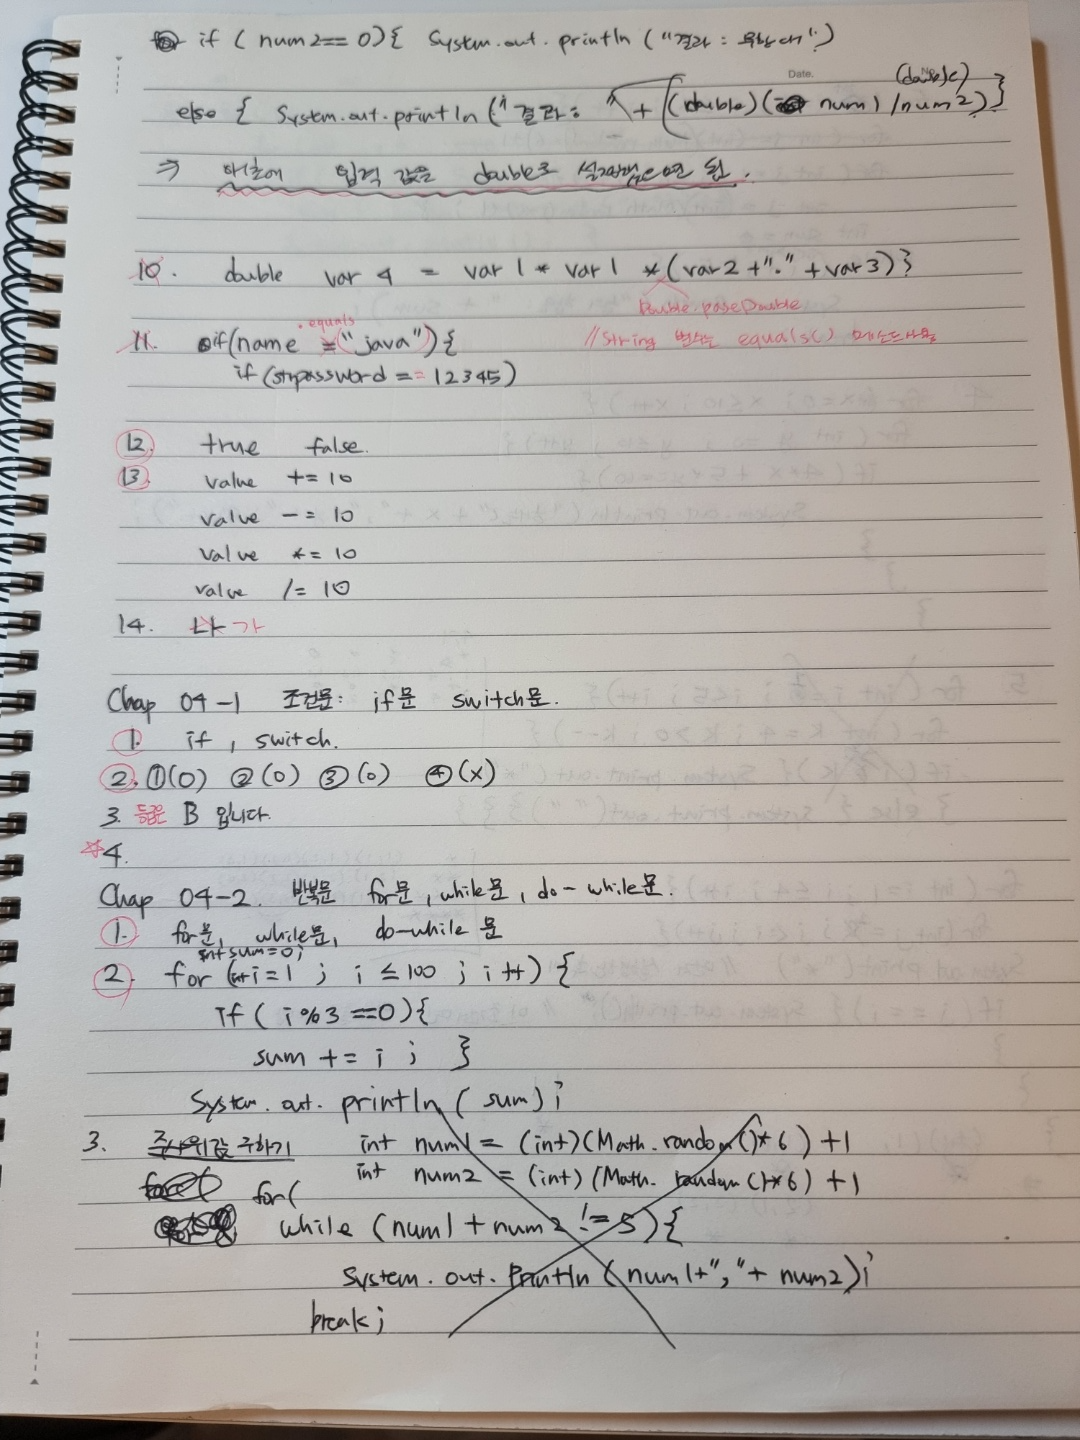 if ( num2== 0){ System.out.println ("결과 : 무한대")
Date.
(double)
else { System.out.println (" 결과: " + ((double)( num1 /num2)}
⇒ 애초에 입력 값을 double로 했으면 됨.
10. double var 4 = var 1 * var 1 * (var2 +"." + var3)}
Double.paseDouble
.equals
11. if(name = ("java"){ //String 변수는 equals() 메소드 사용
if (strpassword == 12345)
12. true false.
13. value += 10
value -= 10
value *= 10
value /= 10
14. 나 가
Chap 04-1 조건문: if문 switch문.
1. if , switch.
2. ①(O) ②(O) ③(O) ④(X)
3. 등급은 B 입니다.
☆4.
Chap 04-2. 반복문 for문, while문, do-while문.
1. for문, while문, do-while 문
int sum=0;
2. for (int i=1 ; i ≤ 100 ; i++) {
if ( i%3 ==0){
sum += i ; }
System.out.println ( sum);
3. 주사위값 구하기 int num1 = (int)(Math.random()*6) +1
int num2 = (int)(Math.random()*6) +1
for(
while (num1 + num2 != 5){
System.out.println (num1+","+ num2);
break;